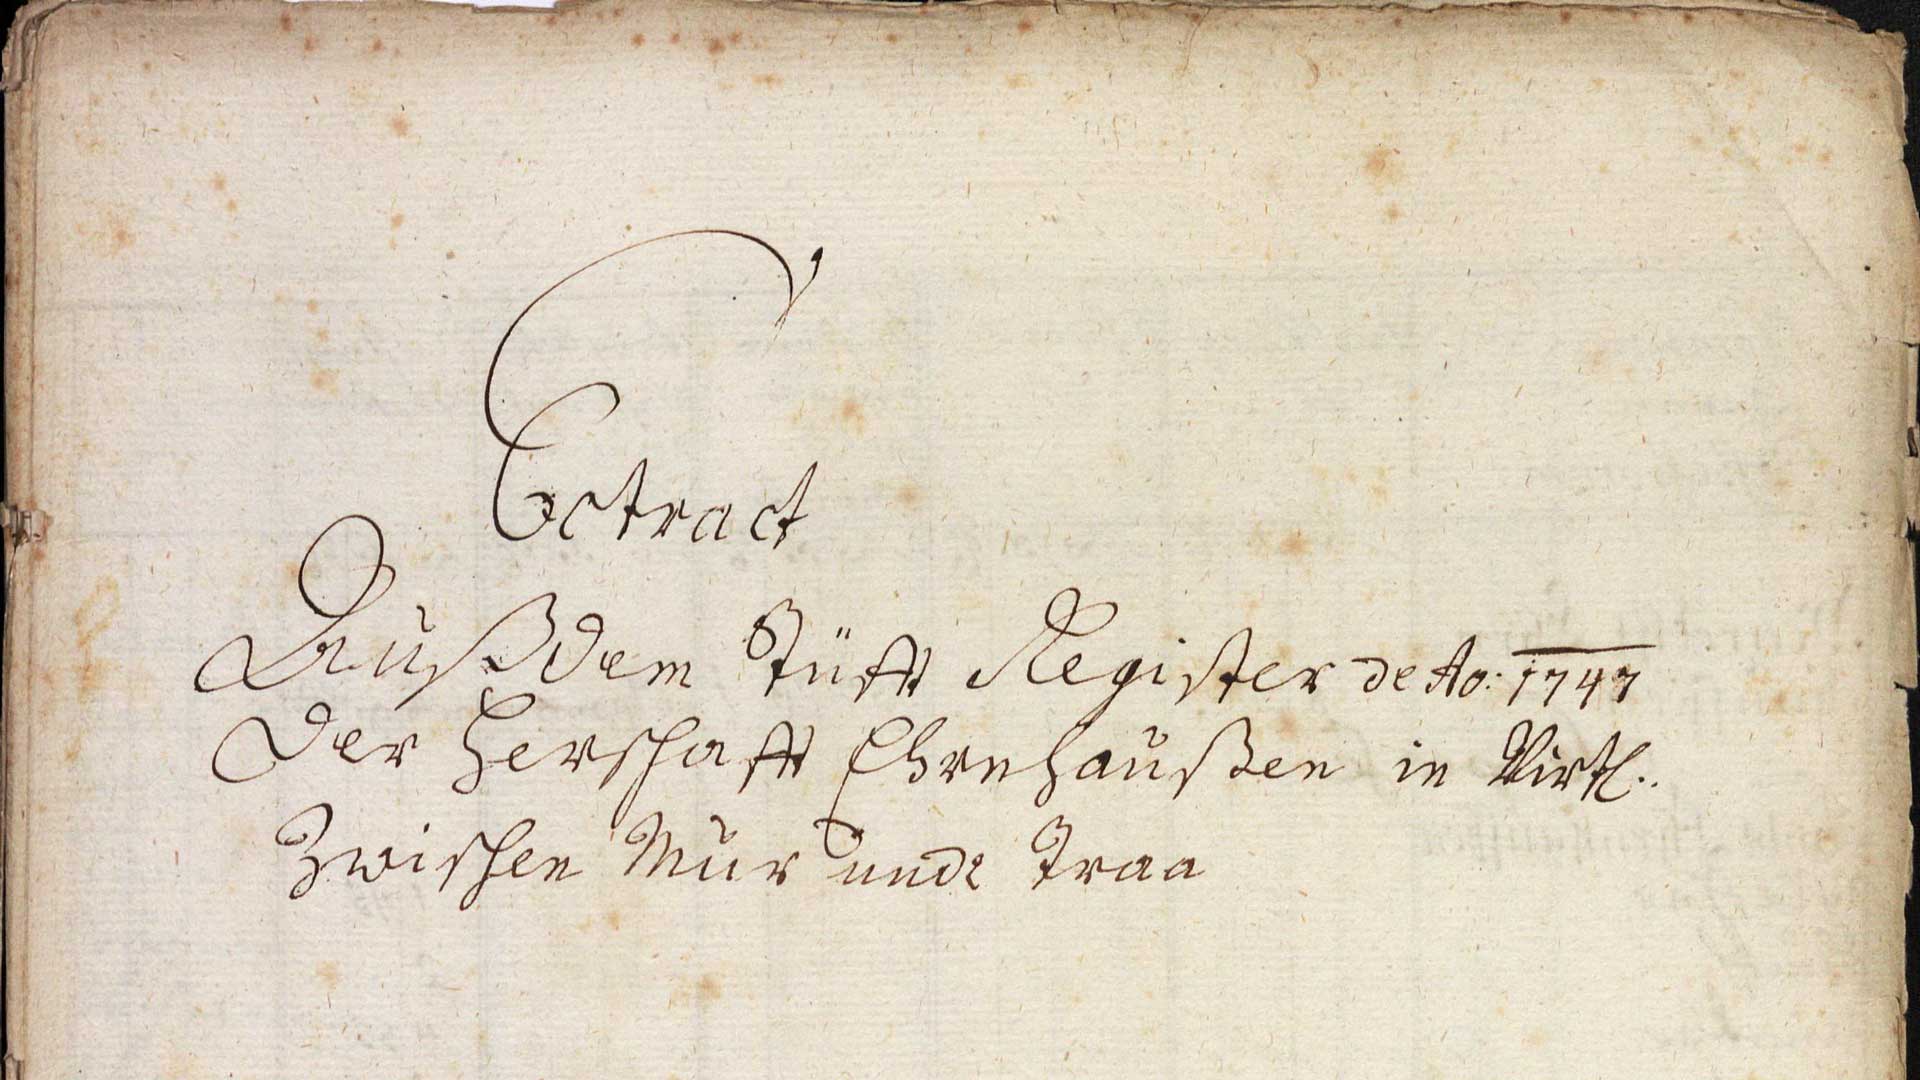 Extract
Auß dem Stüfft Register de Ao: 1747
Der Herschafft Ehrnhaußen in Virtl.
Zwischen Mur undt Traa